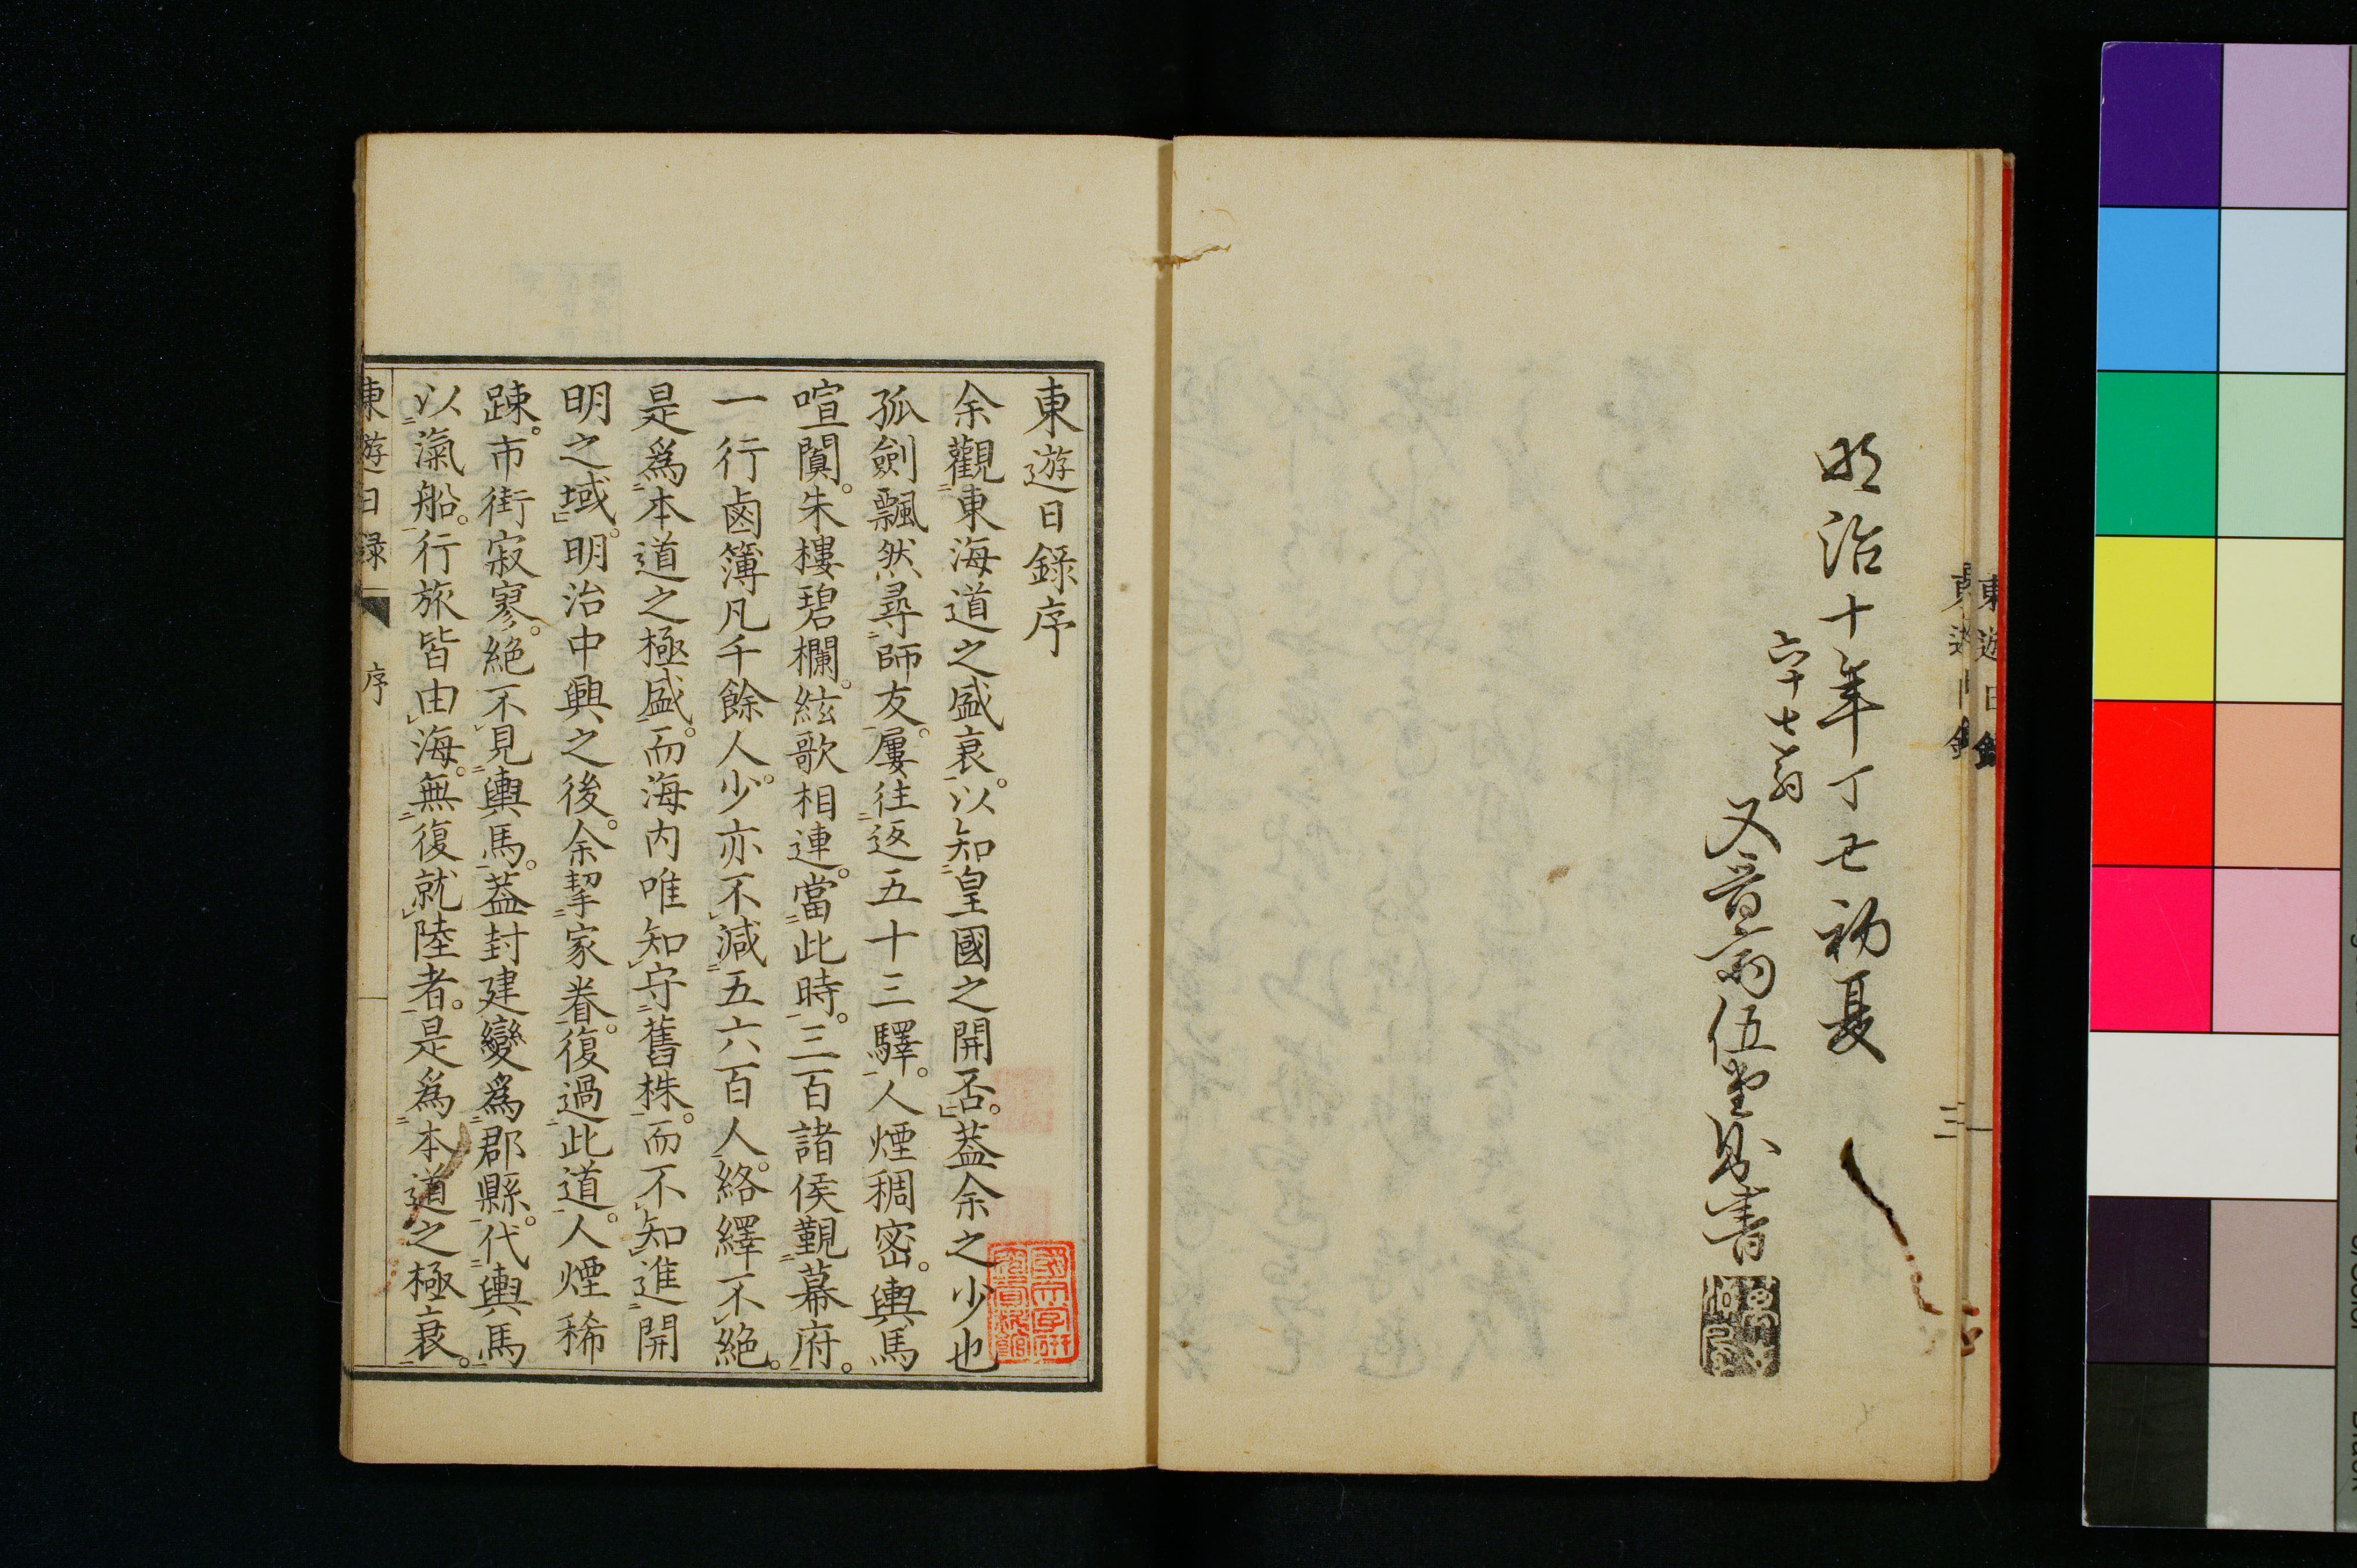 明治十年丁丑初夏
六十七翁
又音翁伍堂

東遊日錄序
余觀東海道之盛衰。以知皇國之開否。葢余之少也
孤劍飄然尋師友。屢往返五十三驛。人煙稠密。輿馬
喧闐。朱樓碧欄。絃歌相連。當此時。三百諸侯覲幕府。
一行鹵簿凡千餘人。少亦不減五六百人。絡繹不絕。
是爲本道之極盛。而海內唯知守舊株。而不知進開
明之域。明治中興之後。余挈家眷。復過此道。人煙稀
踈。市街寂寥。絕不見輿馬。葢封建變爲郡縣。代輿馬
以氣船。行旅皆由海。無復就陸者。是爲本道之極衰。
東遊日錄 序